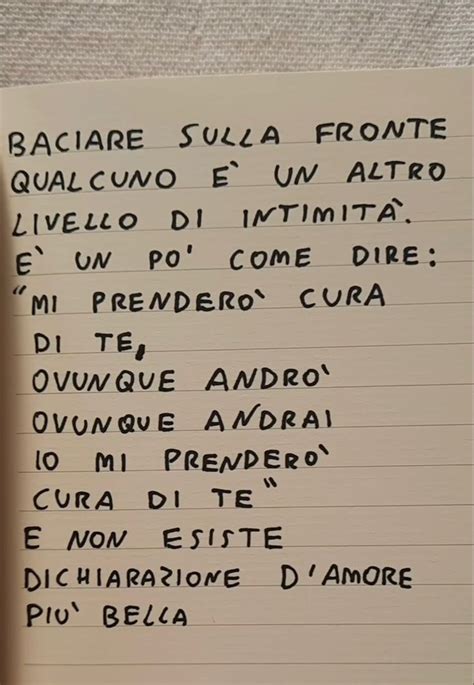 BACIARE SULLA FRONTE
QUALCUNO E' UN ALTRO
LIVELLO DI INTIMITÀ.
E' UN PO' COME DIRE:
"MI PRENDERO' CURA
DI TE,
OVUNQUE ANDRO'
OVUNQUE ANDRAI
IO MI PRENDERO'
CURA DI TE"
E NON ESISTE
DICHIARAZIONE D'AMORE
PIU' BELLA